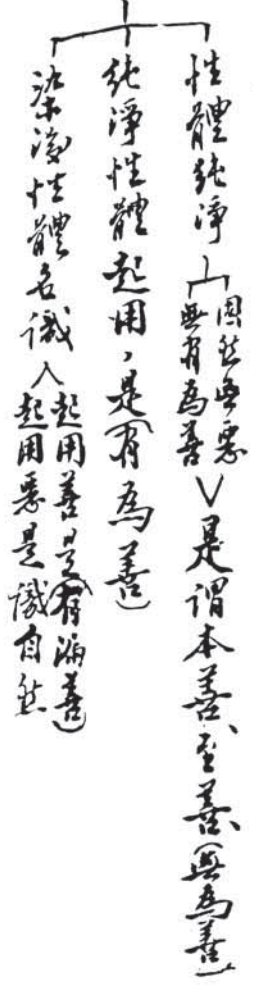 性體純淨
固然無惡
無有為善
是謂本善、至善、(無為善)
純淨性體起用，是(有為善)
染後性體名識
起用善是(有漏善)
起用惡是識自然